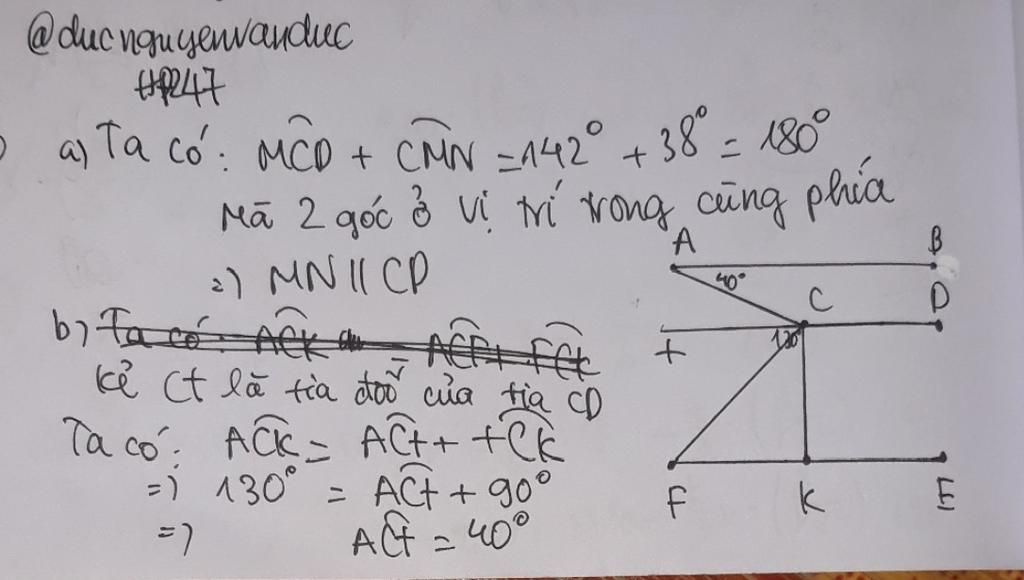 @ducnguyenvanduc
a) Ta có: MCD + CMN = 142° + 38° = 180°
Mà 2 góc ở vị trí trong cùng phía
=> MN // CD
b) Ta có: ACK
kẻ Ct là tia đối của tia CD
Ta có: ACK = ACt + tCK
=> 130° = ACt + 90°
=> ACt = 40°
A B
40°
C D
t 130°
F K E